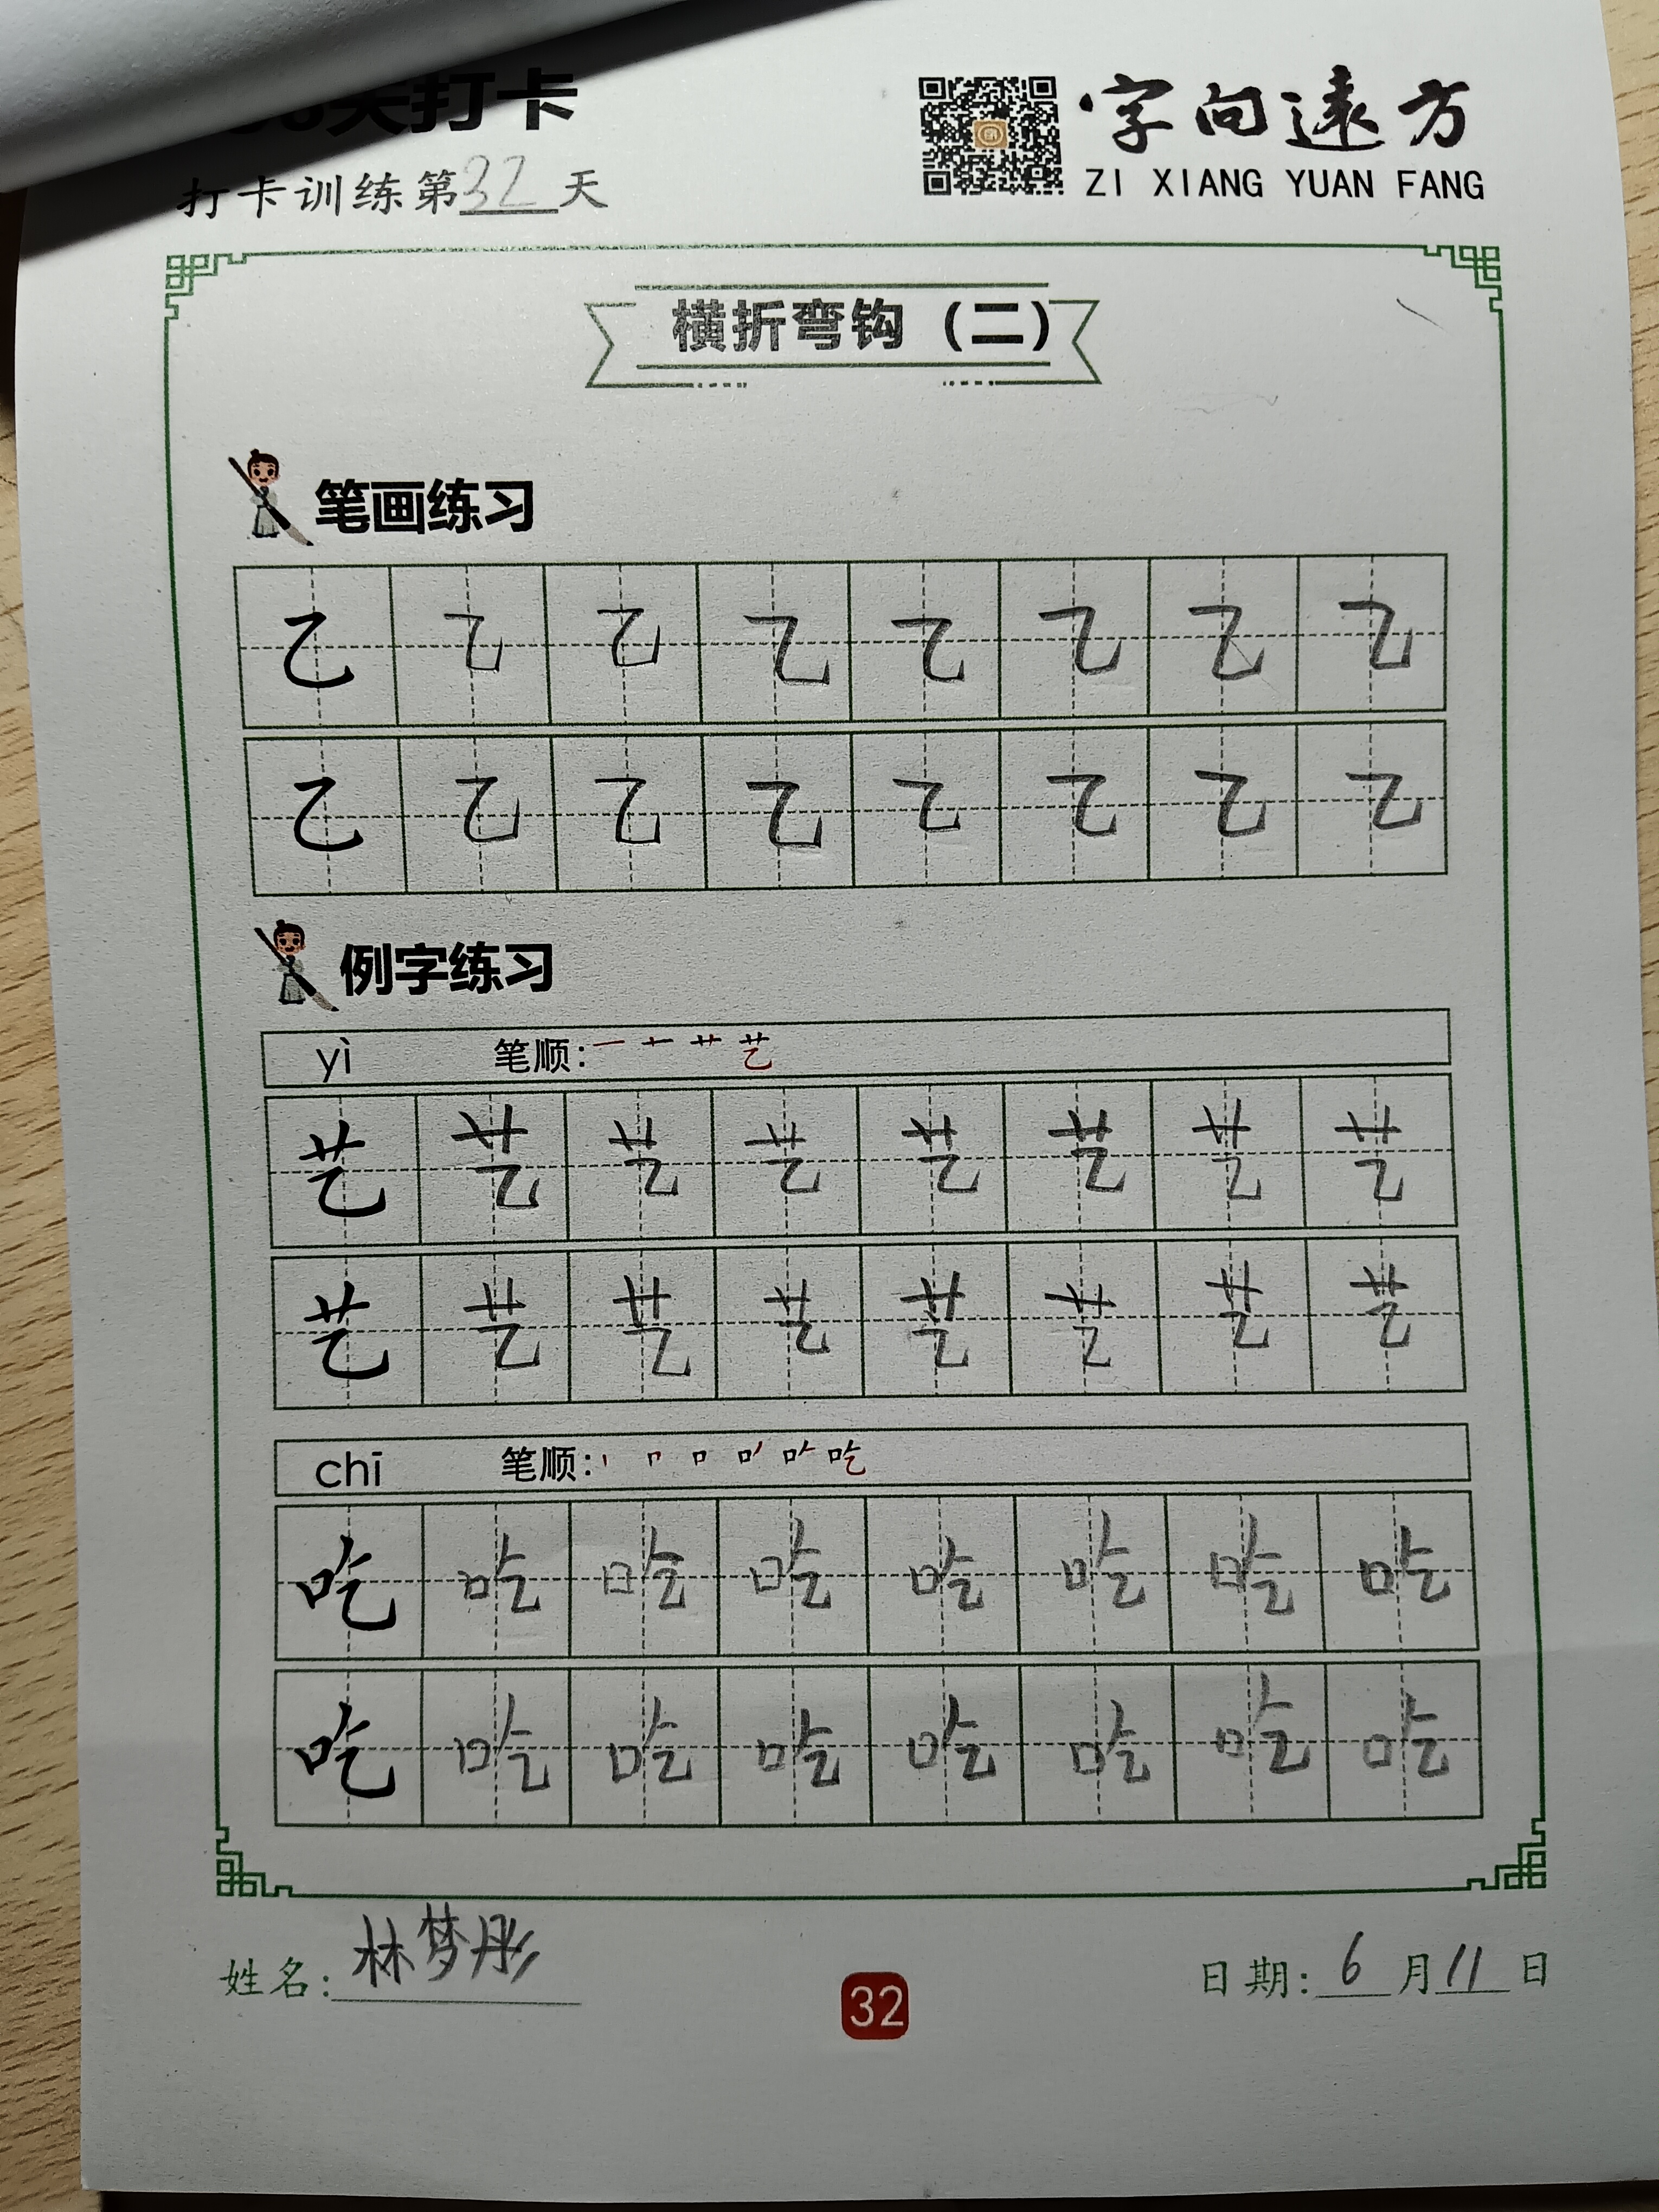 天打卡
字向遠方
ZI XIANG YUAN FANG
打卡训练第32天
横折弯钩（二）
笔画练习
乙 乙 乙 乙 乙 乙 乙 乙
乙 乙 乙 乙 乙 乙 乙 乙
例字练习
yì 笔顺：一 十 艹 艺
艺 艺 艺 艺 艺 艺 艺 艺
艺 艺 艺 艺 艺 艺 艺 艺
chī 笔顺：丨 𠃍 口 吃
吃 吃 吃 吃 吃 吃 吃 吃
吃 吃 吃 吃 吃 吃 吃 吃
姓名：林梦彤
32
日期：6月11日